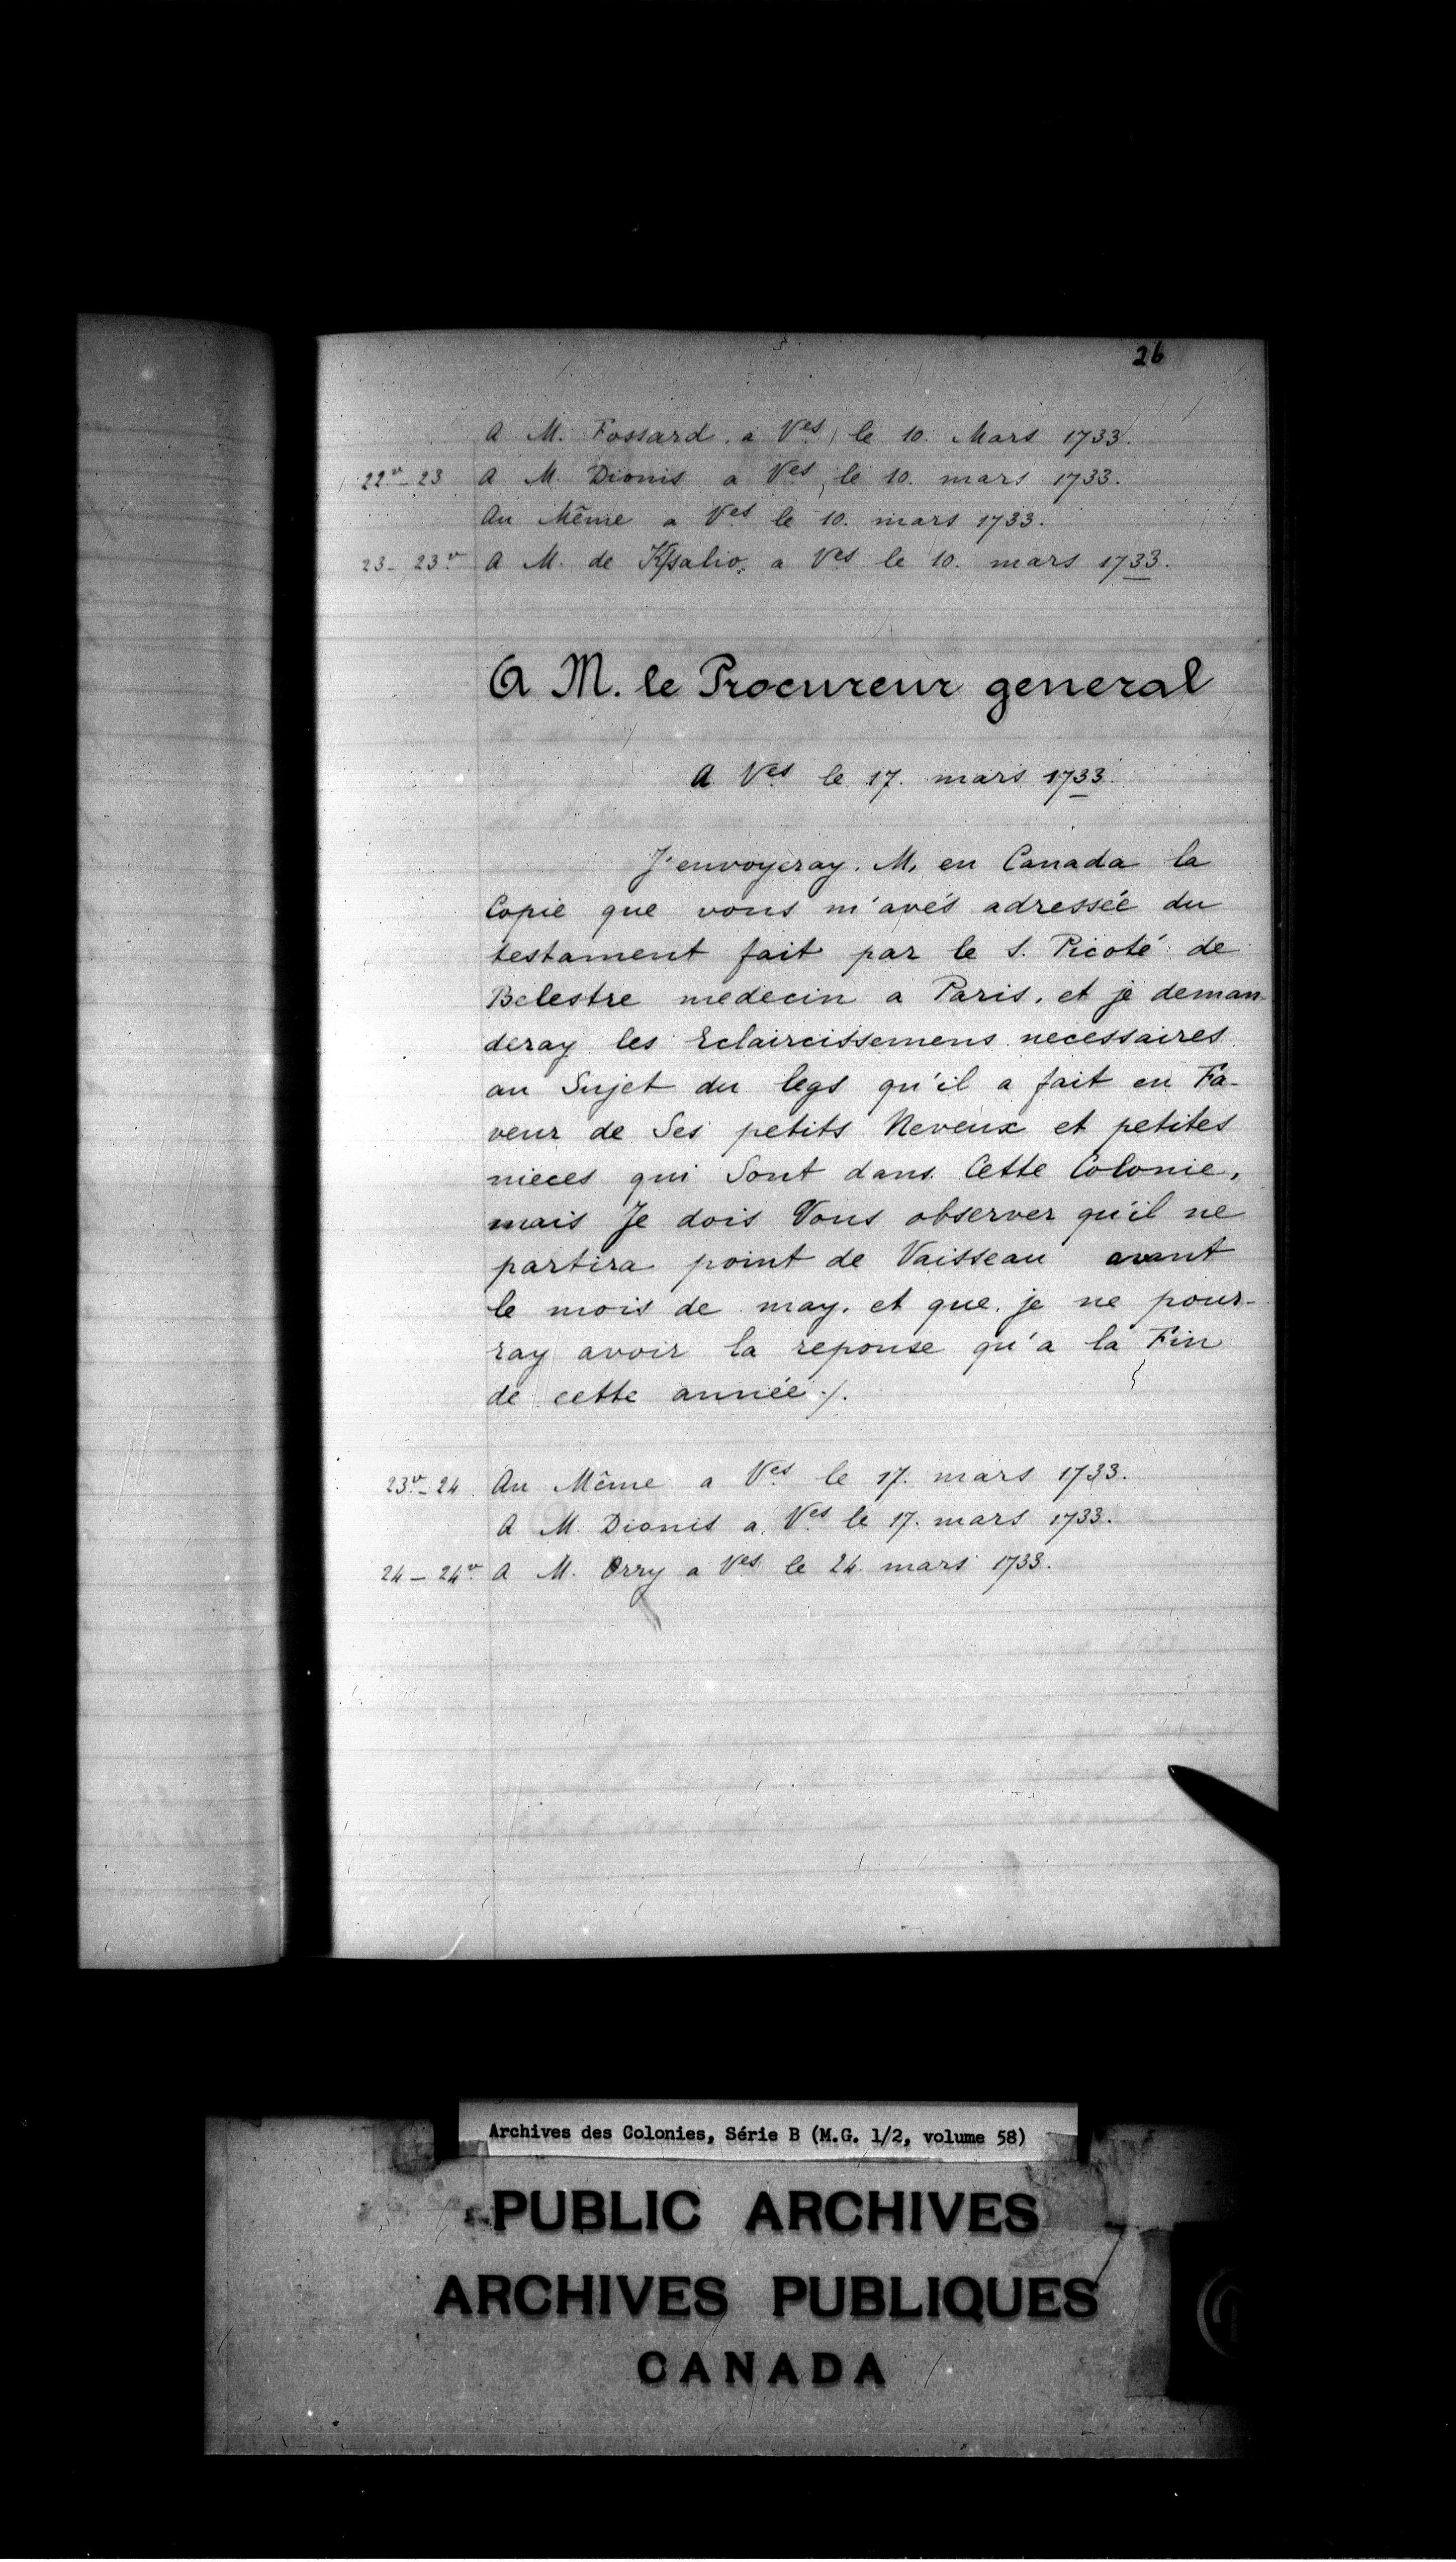 26
A M. Fossard, a Ves, le 10. Mars 1733.
22v - 23 A M. Dionis a Ves, le 10. mars 1733.
Au Même a Ves le 10. mars 1733.
23 - 23v A M. de a Ves le 10. mars 1733.
A M. le Procureur general
A Ves le 17. mars 1733.
J'envoyeray, M, en Canada la
Copie que vous m'avés adressée du
testament fait par le S. Picoté de
Belestre medecin a Paris, et je deman-
deray les Eclaircissemens necessaires
au Sujet du legs qu'il a fait en Fa-
veur de Ses petits Neveux et petites
nieces qui Sont dans Cette Colonie,
mais Je dois Vous observer qu'il ne
partira point de Vaisseau avant
le mois de may, et que je ne pour-
ray avoir la reponse qu'a la Fin
de cette année ./.
23v - 24 Au Même a Ves le 17. mars 1733.
A M. Dionis a Ves le 17. mars 1733.
24 - 24v A M. Orry a Ves le 24 mars 1733.
Archives des Colonies, Série B (M.G. 1/2, volume 58)
PUBLIC ARCHIVES
ARCHIVES PUBLIQUES
CANADA